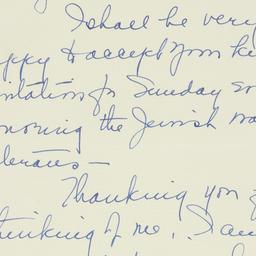 I shall be very
ppy to accept your ki
nvitation for Sunday
onoring the Jewish wa
terans —
Thanking you f
thinking of me, I am